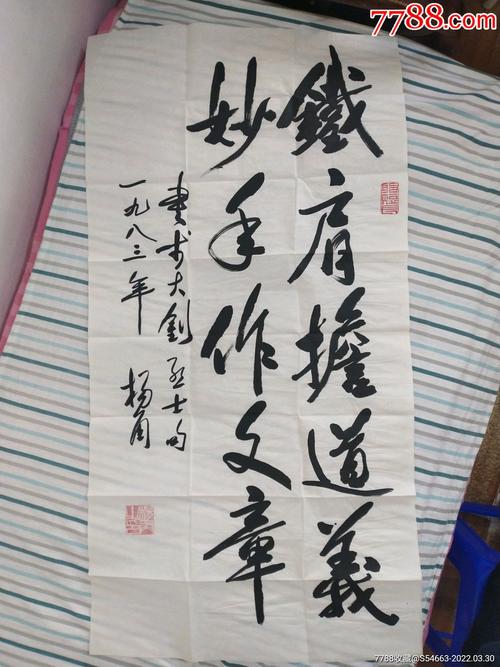 7788.com
鐵肩擔道義
妙手作文章
書李大釗烈士句
一九八三年 楊角
7788收藏@S54663-2022.03.30